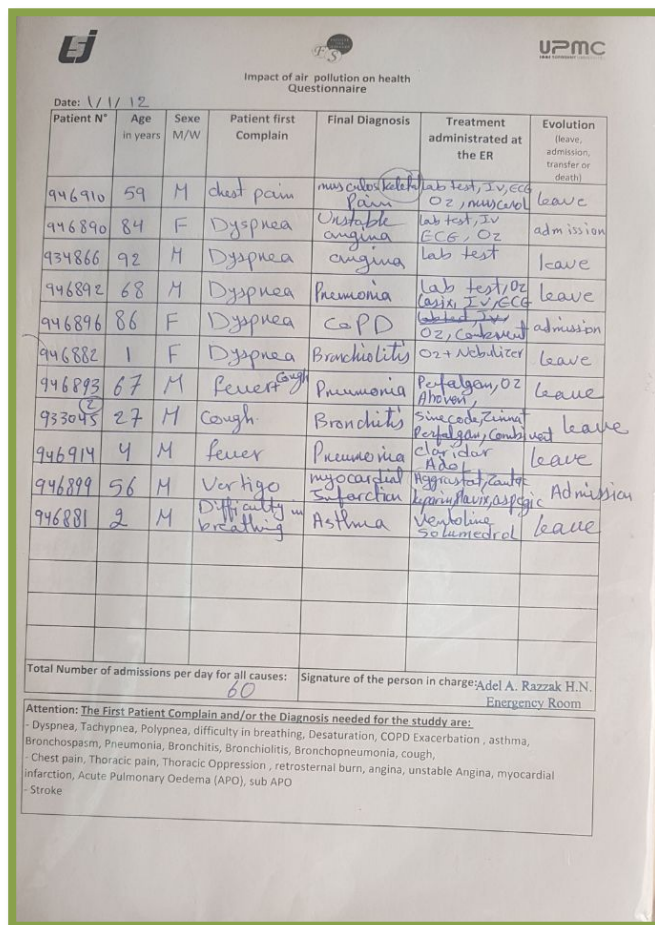 USJ
UPMC
Impact of air pollution on health
Questionnaire
Date: 1/1/12
Patient N° Age in years Sexe M/W Patient first Complain Final Diagnosis Treatment administrated at the ER Evolution (leave, admission, transfer or death)
946910 59 M chest pain musculoskeletal Pain Lab test, IV, ECG O2, muscerol leave
946890 84 F Dyspnea Unstable angina Lab test, IV ECG, O2 admission
934866 92 M Dyspnea angina Lab test leave
946892 68 M Dyspnea Pneumonia Lab test, O2 Lasix, IV, ECG leave
946896 86 F Dyspnea COPD O2, Combivent admission
946882 1 F Dyspnea Bronchiolitis O2 + Nebulizer leave
946893 67 M fever + Cough Pneumonia Perfalgan, O2 leave
933045 2 27 M Cough Bronchitis Sinecode, Zinnat Perfalgan, Combivent leave
946914 4 M fever Pneumonia claridar Adol leave
946899 56 M Vertigo myocardial Infarction Aggrastat, Zantac plavix, aspegic Admission
946881 2 M Difficulty in breathing Asthma Ventoline Solumedrol leave
Total Number of admissions per day for all causes: 60
Signature of the person in charge: Adel A. Razzak H.N.
Energency Room
Attention: The First Patient Complain and/or the Diagnosis needed for the studdy are:
- Dyspnea, Tachypnea, Polypnea, difficulty in breathing, Desaturation, COPD Exacerbation , asthma,
Bronchospasm, Pneumonia, Bronchitis, Bronchiolitis, Bronchopneumonia, cough,
- Chest pain, Thoracic pain, Thoracic Oppression , retrosternal burn, angina, unstable Angina, myocardial
infarction, Acute Pulmonary Oedema (APO), sub APO
- Stroke